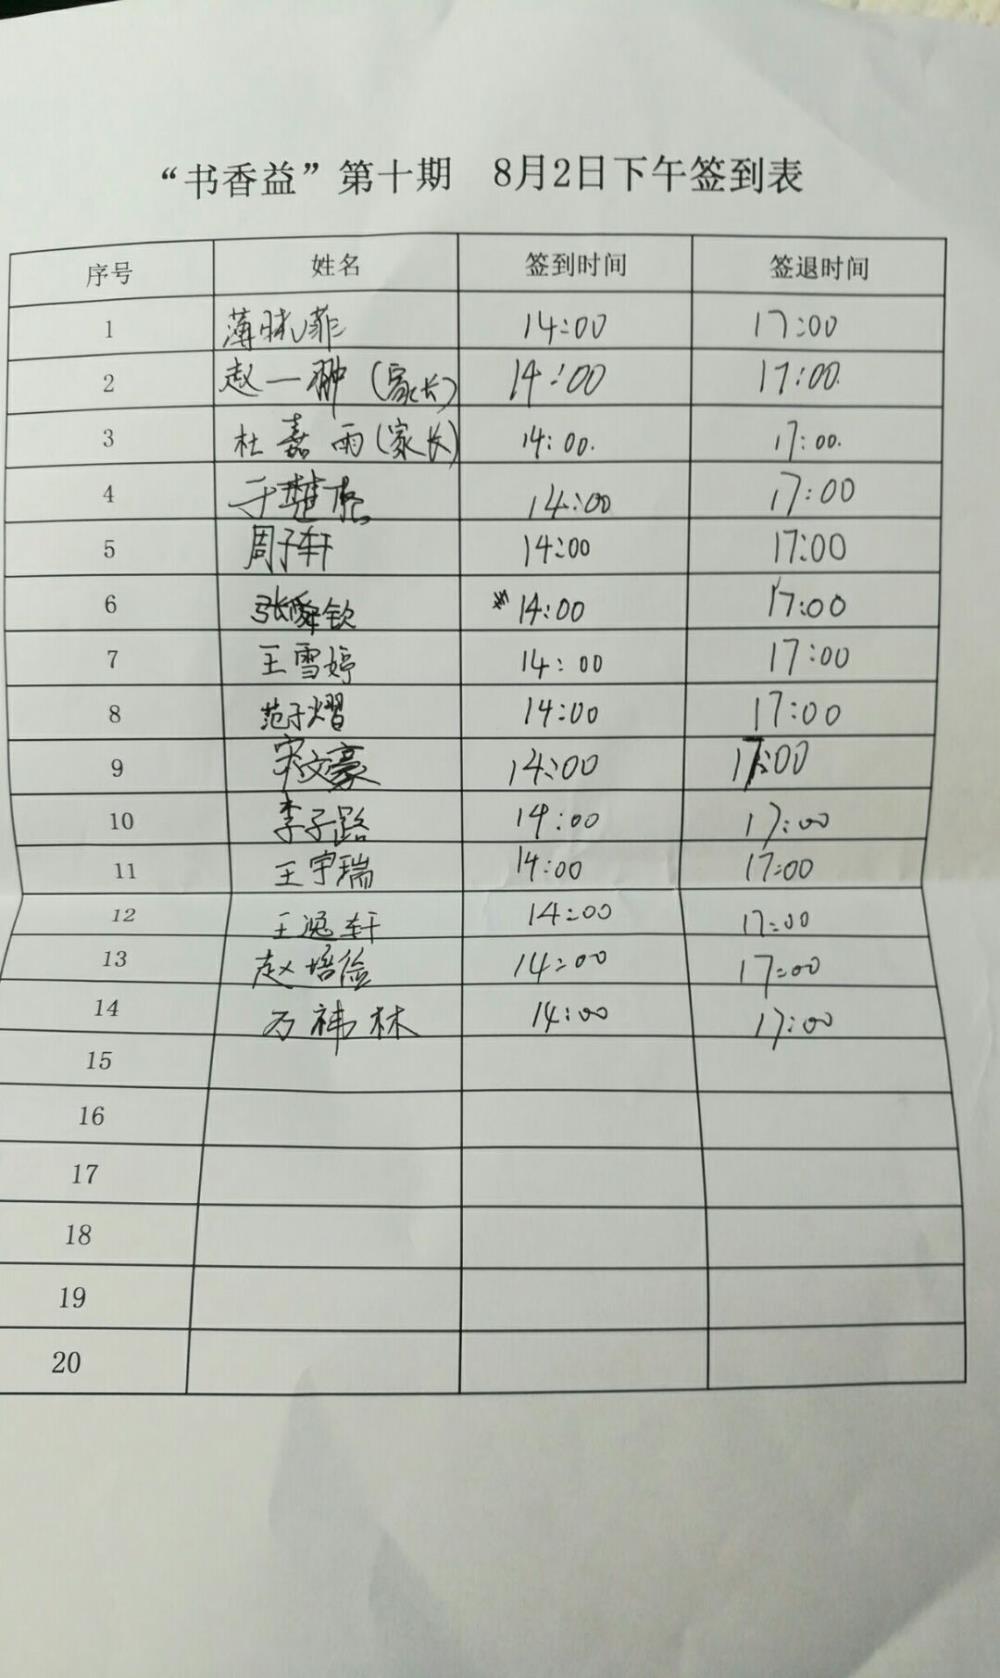 “书香益”第十期 8月2日下午签到表
序号 姓名 签到时间 签退时间
1 薄晓菲 14:00 17:00
2 赵一翀(家长) 14:00 17:00
3 杜嘉雨(家长) 14:00. 17:00.
4 于楚 14:00 17:00
5 周子轩 14:00 17:00
6 张舜钦 14:00 17:00
7 王雪婷 14:00 17:00
8 范于熠 14:00 17:00
9 宋文豪 14:00 17:00
10 李子路 14:00 17:00
11 王宇瑞 14:00 17:00
12 王逸轩 14:00 17:00
13 赵培俭 14:00 17:00
14 万祎林 14:00 17:00
15
16
17
18
19
20